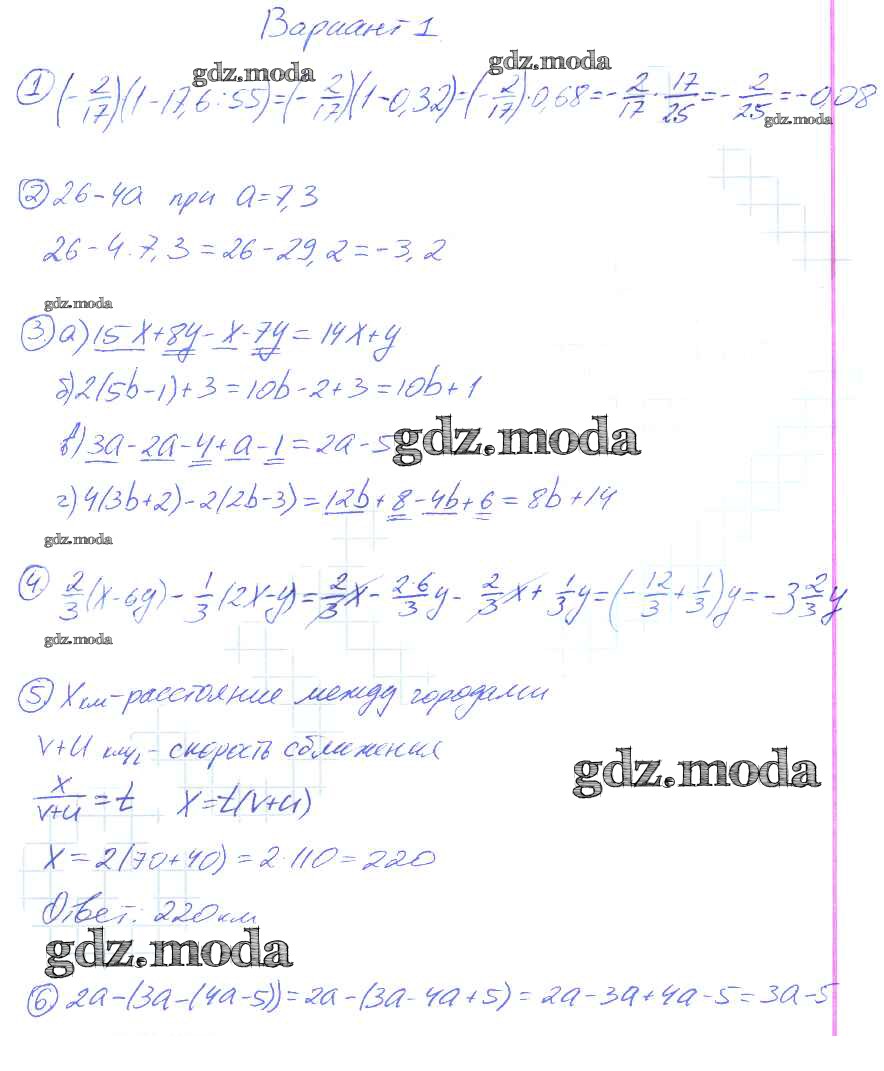 Вариант 1.
gdz.moda gdz.moda
① (-2/17)(1-17,6:55)=(-2/17)(1-0,32)=(-2/17)·0,68=-2/17·17/25=-2/25=-0,08
gdz.moda
② 26-4a при a=7,3
26-4·7,3=26-29,2=-3,2
gdz.moda
③ а) 15x+8y-x-7y=14x+y
б) 2(5b-1)+3=10b-2+3=10b+1
в) 3a-2a-4+a-1=2a-5
gdz.moda
г) 4(3b+2)-2(2b-3)=12b+8-4b+6=8b+14
gdz.moda
④ 2/3(x-6y)-1/3(2x-y)=2/3x-2·6/3y-2/3x+1/3y=(-12/3+1/3)y=-3 2/3y
gdz.moda
⑤ x км-расстояние между городами
v+u км/ч-скорость сближения
gdz.moda
x/(v+u)=t x=t(v+u)
x=2(70+40)=2·110=220
Ответ: 220 км
gdz.moda
⑥ 2a-(3a-(4a-5))=2a-(3a-4a+5)=2a-3a+4a-5=3a-5